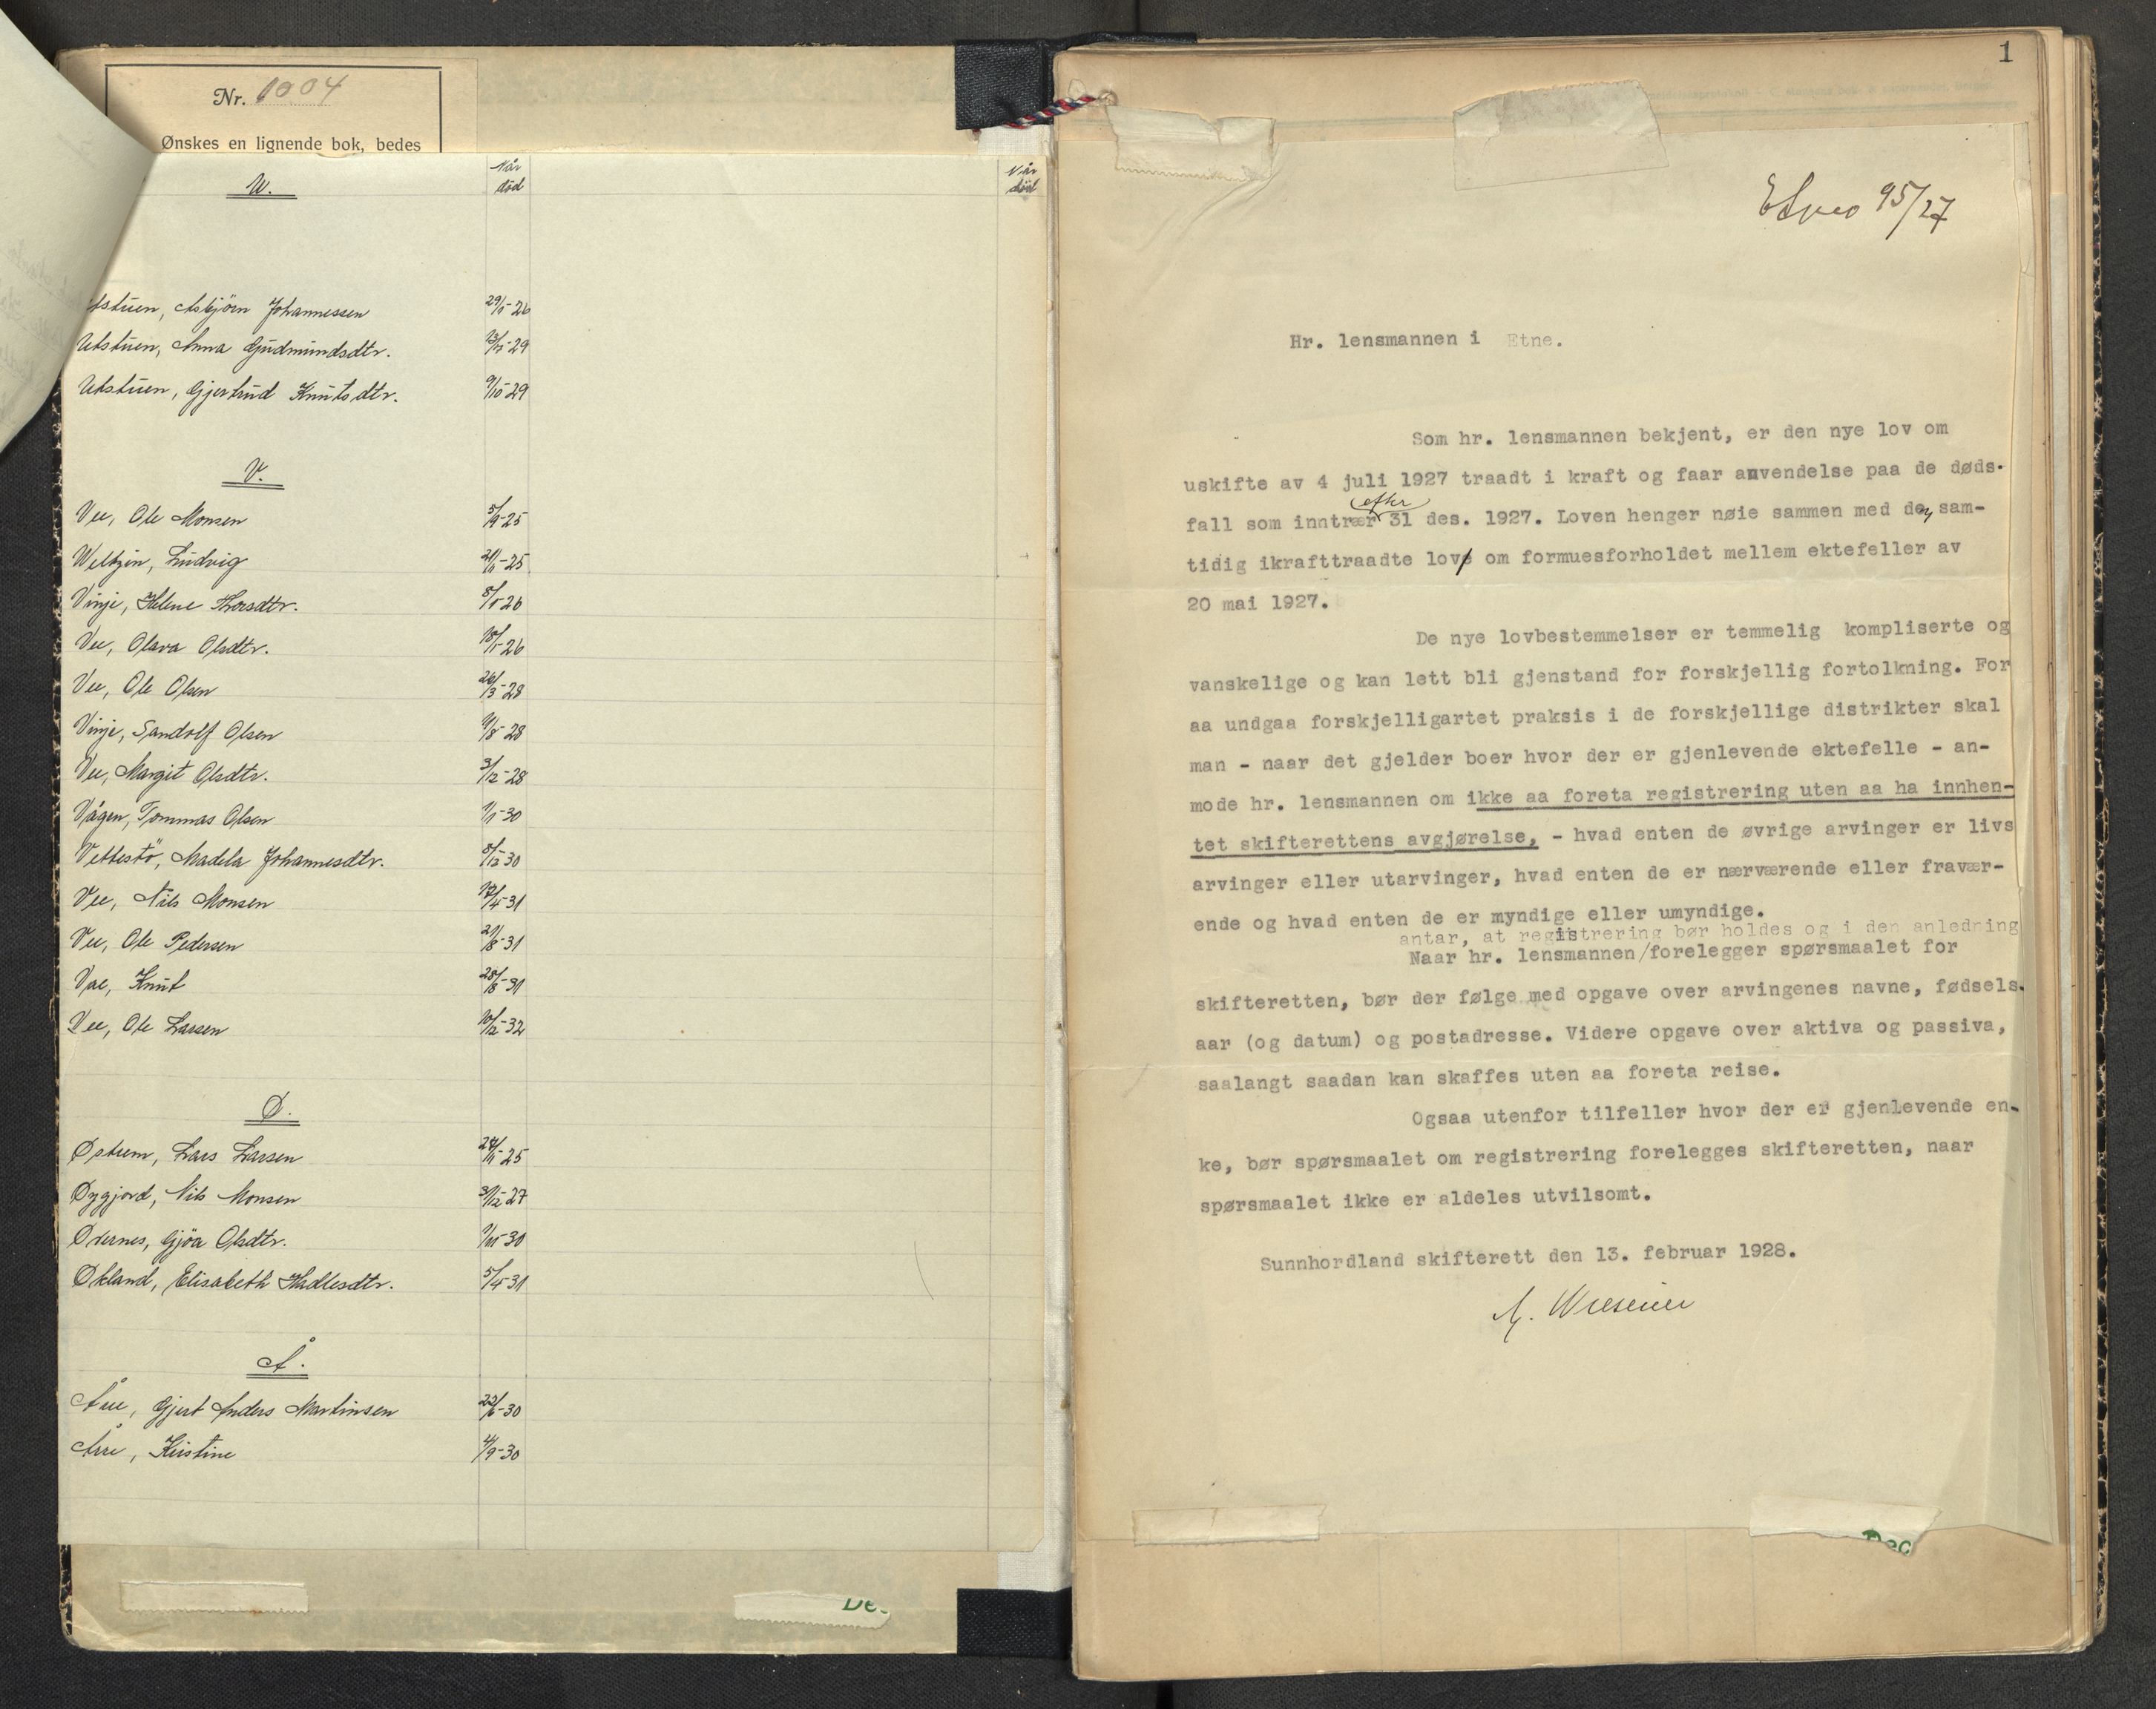 Nr. 1004
Ønskes en lignende bok, bedes
U.
Når død
Når død
Utstuen, Asbjörn Johannessen
Utstuen, Anna Gudmundsdtr.
Utstuen, Gjertrud Knutsdtr. 9/10-29
V.
Vee, Ole Monsen 5/9-25
Weltzin, Ludvig
Vinje, Helene Thorsdtr.
Vee, Olava Olsdtr.
Vee, Ole Olsen 26/3-28
Vinje, Sandolf Olsen
Vee, Margit Olsdtr. 3/12-28
Vågen, Tommas Olsen 1/1-30
Vettestö, Madela Johannesdtr. 8/12 30
Vee, Nils Monsen 17/4-31
Vee, Ole Pedersen 21/8-31
Vae, Knut 28/8-31
Vee, Ole Larsen 10/12-32
Ø.
Østrem, Lars Larsen 24/11-25
Øygjord, Nils Monsen 31/12-27
Øvernes, Gjöa Olsdtr.
Økland, Elisabeth Hadlesdtr. 5/4-31
Å.
Åre, Gjert Anders Martinsen 22/6-30
Åre, Kristine 4/9-30
1
95/27
Hr. lensmannen i Etne.
Som hr. lensmannen bekjent, er den nye lov om
uskifte av 4 juli 1927 traadt i kraft og faar anvendelse paa de døds-
efter
fall som inntrær 31 des. 1927. Loven henger nøie sammen med den sam-
tidig ikrafttraadte lov om formuesforholdet mellem ektefeller av
20 mai 1927.
De nye lovbestemmelser er temmelig kompliserte og
vanskelige og kan lett bli gjenstand for forskjellig fortolkning. For
aa undgaa forskjelligartet praksis i de forskjellige distrikter skal
man - naar det gjelder boer hvor der er gjenlevende ektefelle - an-
mode hr. lensmannen om ikke aa foreta registrering uten aa ha innhen-
tet skifterettens avgjørelse, - hvad enten de øvrige arvinger er livs
arvinger eller utarvinger, hvad enten de er nærværende eller fravær-
ende og hvad enten de er myndige eller umyndige.
antar, at registrering bør holdes og i den anledning
Naar hr. lensmannen/forelegger spørsmaalet for
skifteretten, bør der følge med opgave over arvingenes navne, fødsels-
aar (og datum) og postadresse. Videre opgave over aktiva og passiva,
saalangt saadan kan skaffes uten aa foreta reise.
Ogsaa utenfor tilfeller hvor der er gjenlevende en-
ke, bør spørsmaalet om registrering forelegges skifteretten, naar
spørsmaalet ikke er aldeles utvilsomt.
Sunnhordland skifterett den 13. februar 1928.